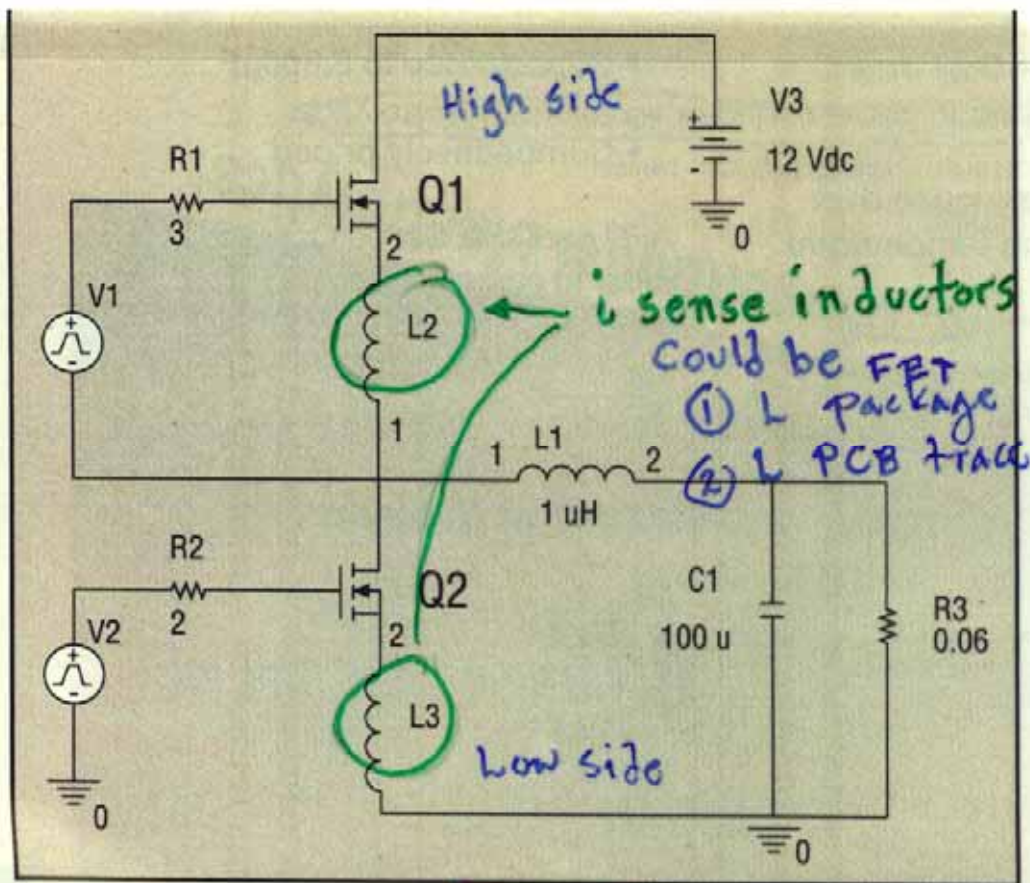 High side
V3
12 Vdc
0
R1
3
Q1
V1
2
L2
i sense inductors
Could be FET
① L package
② L PCB trace
1
1 L1 2
1 uH
R2
2
Q2
V2
2
C1
100 u
R3
0.06
L3
Low side
0
0